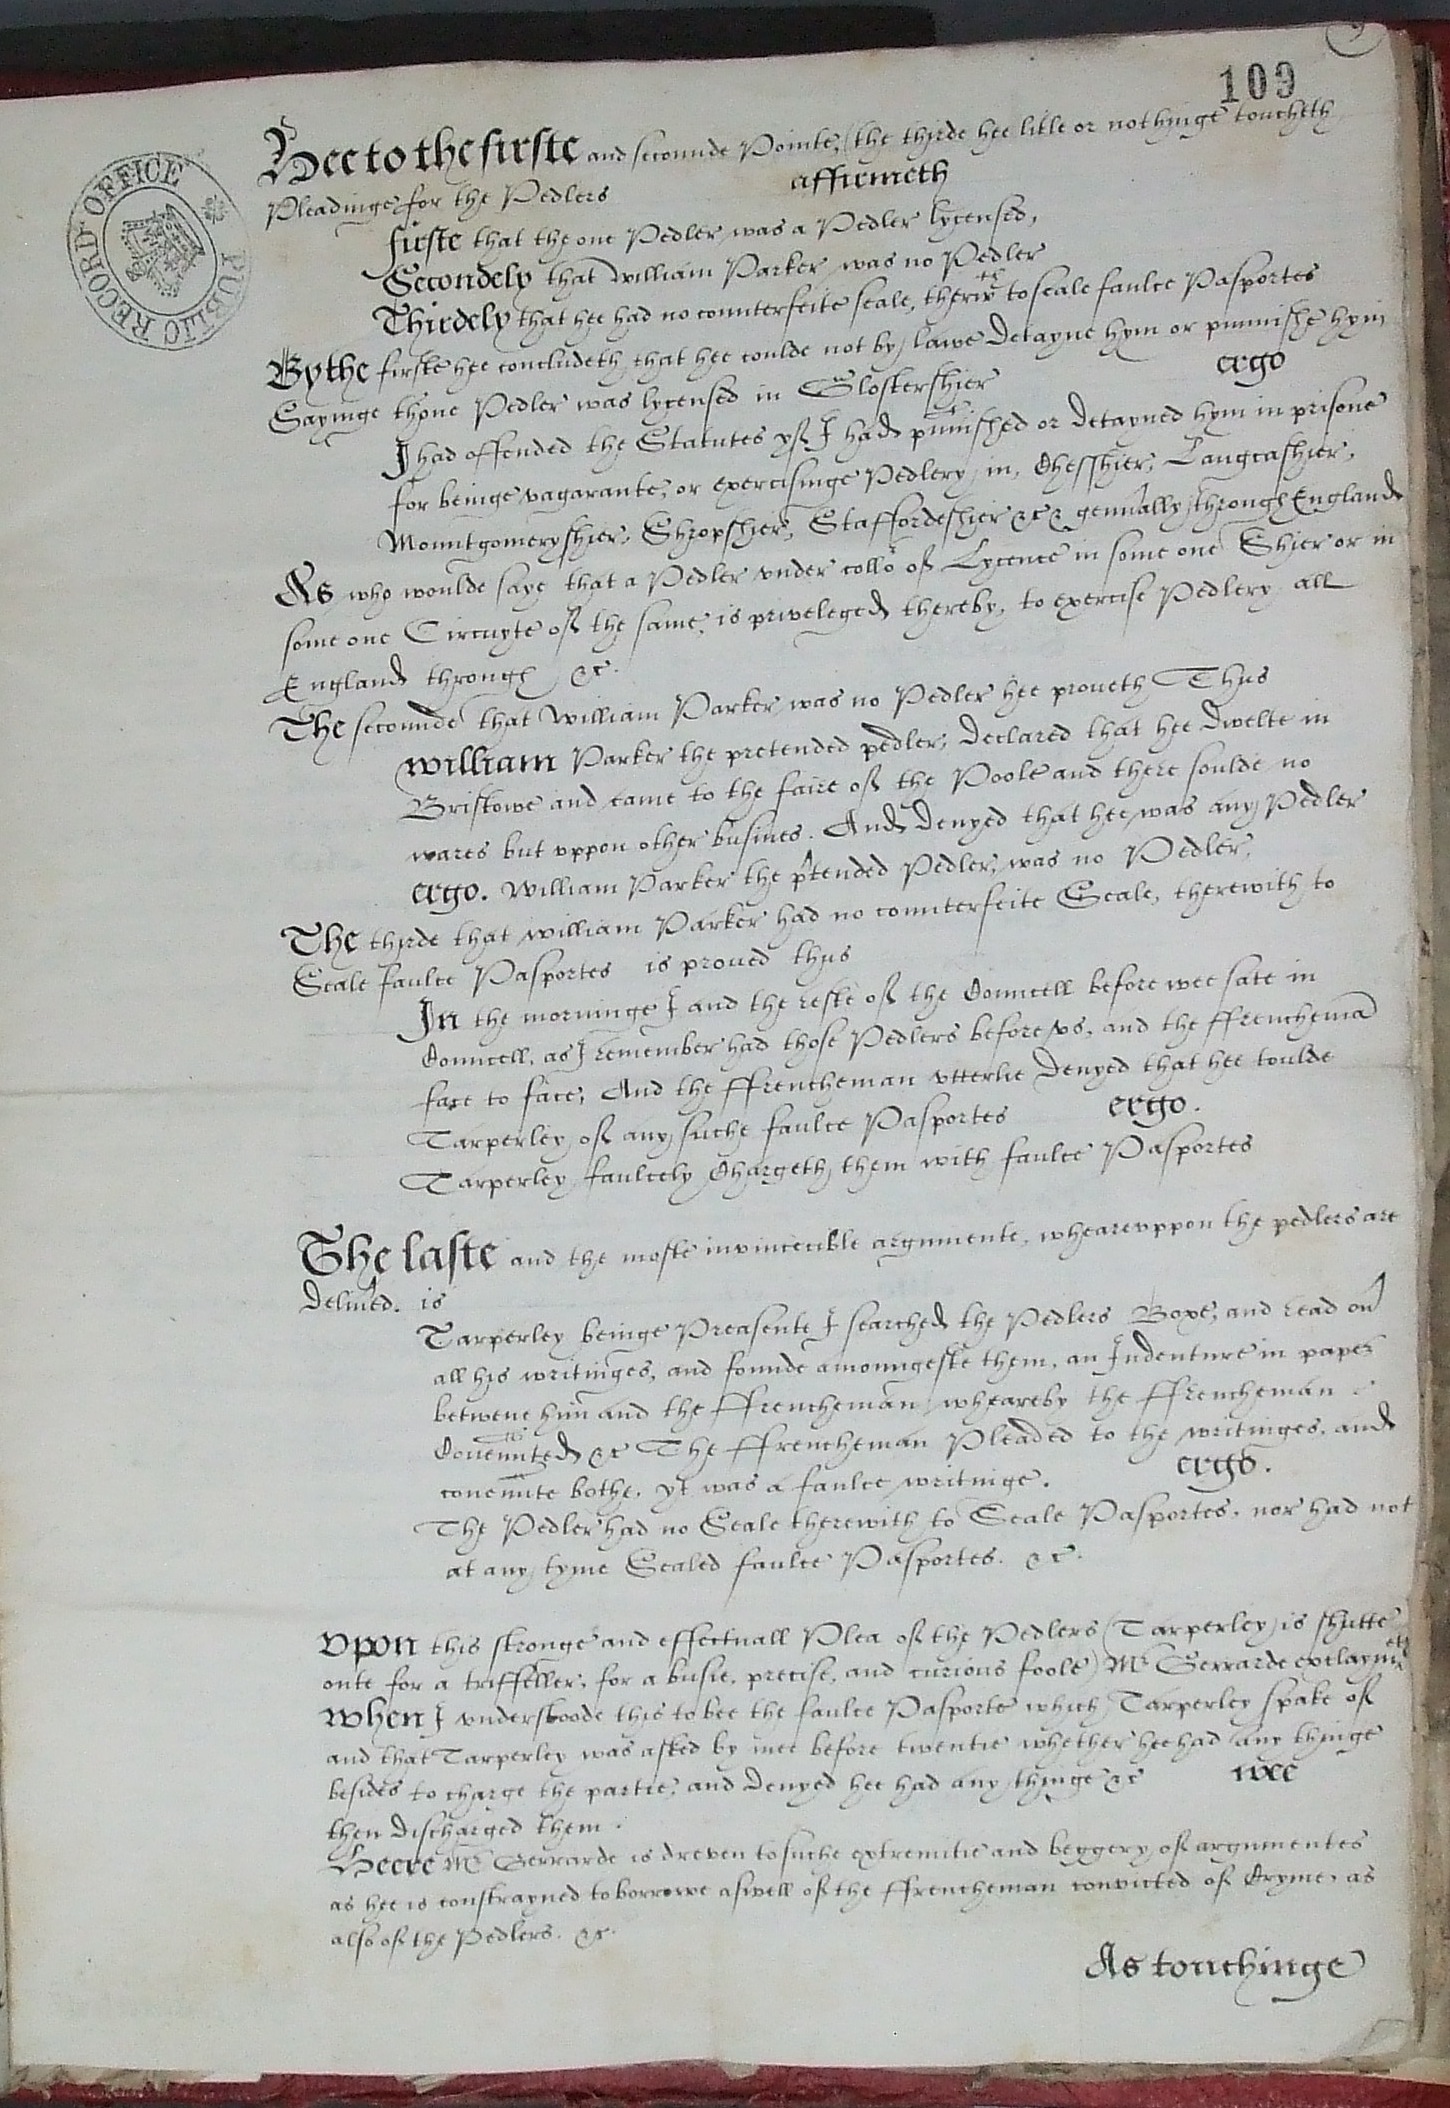 109
PUBLIC RECORD OFFICE
Hee to the firste and secounde Pointe, (the thirde hee litle or nothinge toucheth
Pleadinge for the Pedlers affirmeth
firste that the one Pedler was a Pedler lycensed,
Secondely that william Parker was no Pedler
Thirdely that hee had no counterfeite seale, therwth to seale faulce Pasportes
By the firste hee concludeth that hee coulde not by lawe detayne hym or punnishe hym
Sayinge thone Pedler was lycensed in Glostershier ergo
I had offended the Statutes yf I had punnished or detayned hym in prisone
for beinge vagarante, or exercisinge Pedlery in, Chesshier, Langcashier,
Mountgomeryshier, Shropshier, Staffordeshier &c & genn'ally through England
As who woulde saye that a Pedler vnder collor of Lycence in some one Shier or in
some one Circuyte of the same, is priveleged thereby, to exercise Pedlery all
England through &c.
The secounde that William Parker was no Pedler hee proueth Thus
william Parker the pretended pedler, declared that hee dwelte in
Bristowe and came to the faire of the Poole and there soulde no
wares but vppon other busines. And denyed that hee was any Pedler
ergo. William Parker the p'tended Pedler, was no Pedler,
The thirde that william Parker had no counterfeite Seale, therewith to
Seale faulce Pasportes is proued thus
In the morninge I and the reste of the Councell before wee sate in
Councell, as I remember had those Pedlers before vs, and the ffrenchema
face to face, And the ffrencheman vtterlie denyed that hee toulde
Tarperley of any suche faulce Pasportes ergo.
Tarperley faulcely Chargeth them with faulce Pasportes
The laste and the moste invincecible argumente, whearevppon the pedlers are
deliu'ed. is
Tarperley beinge Preasente I searched the Pedlers Boxe, and read ou'
all his writinges, and founde amoungeste them, an Indenture in paper
betwene him and the ffrencheman wheareby the ffrencheman
Couennted &c The ffrencheman Pleaded to the writinges, and
couennte bothe, yt was a faulce writinge. ergo.
The Pedler had no Seale therewith to Seale Pasportes, nor had not
at any tyme Sealed faulce Pasportes. &c.
Vpon this stronge and effectuall Plea of the Pedlers (Tarperley is shutte
oute for a triffeller, for a busie, precise, and curious foole) Mr Gerrarde exclaymeth
When I vnderstoode this to bee the faulce Pasporte which Tarperley spake of
and that Tarperley was asked by mee before twentie whether hee had any thinge
besides to charge the partie, and denyed hee had any thinge &c wee
then discharged them.
Heere Mr Gerrarde is dreven to suche extremitie and beggery of argumentes
as hee is constrayned to borrowe aswell of the ffrencheman convicted of Cryme, as
also of the Pedlers. &c.
As touchinge